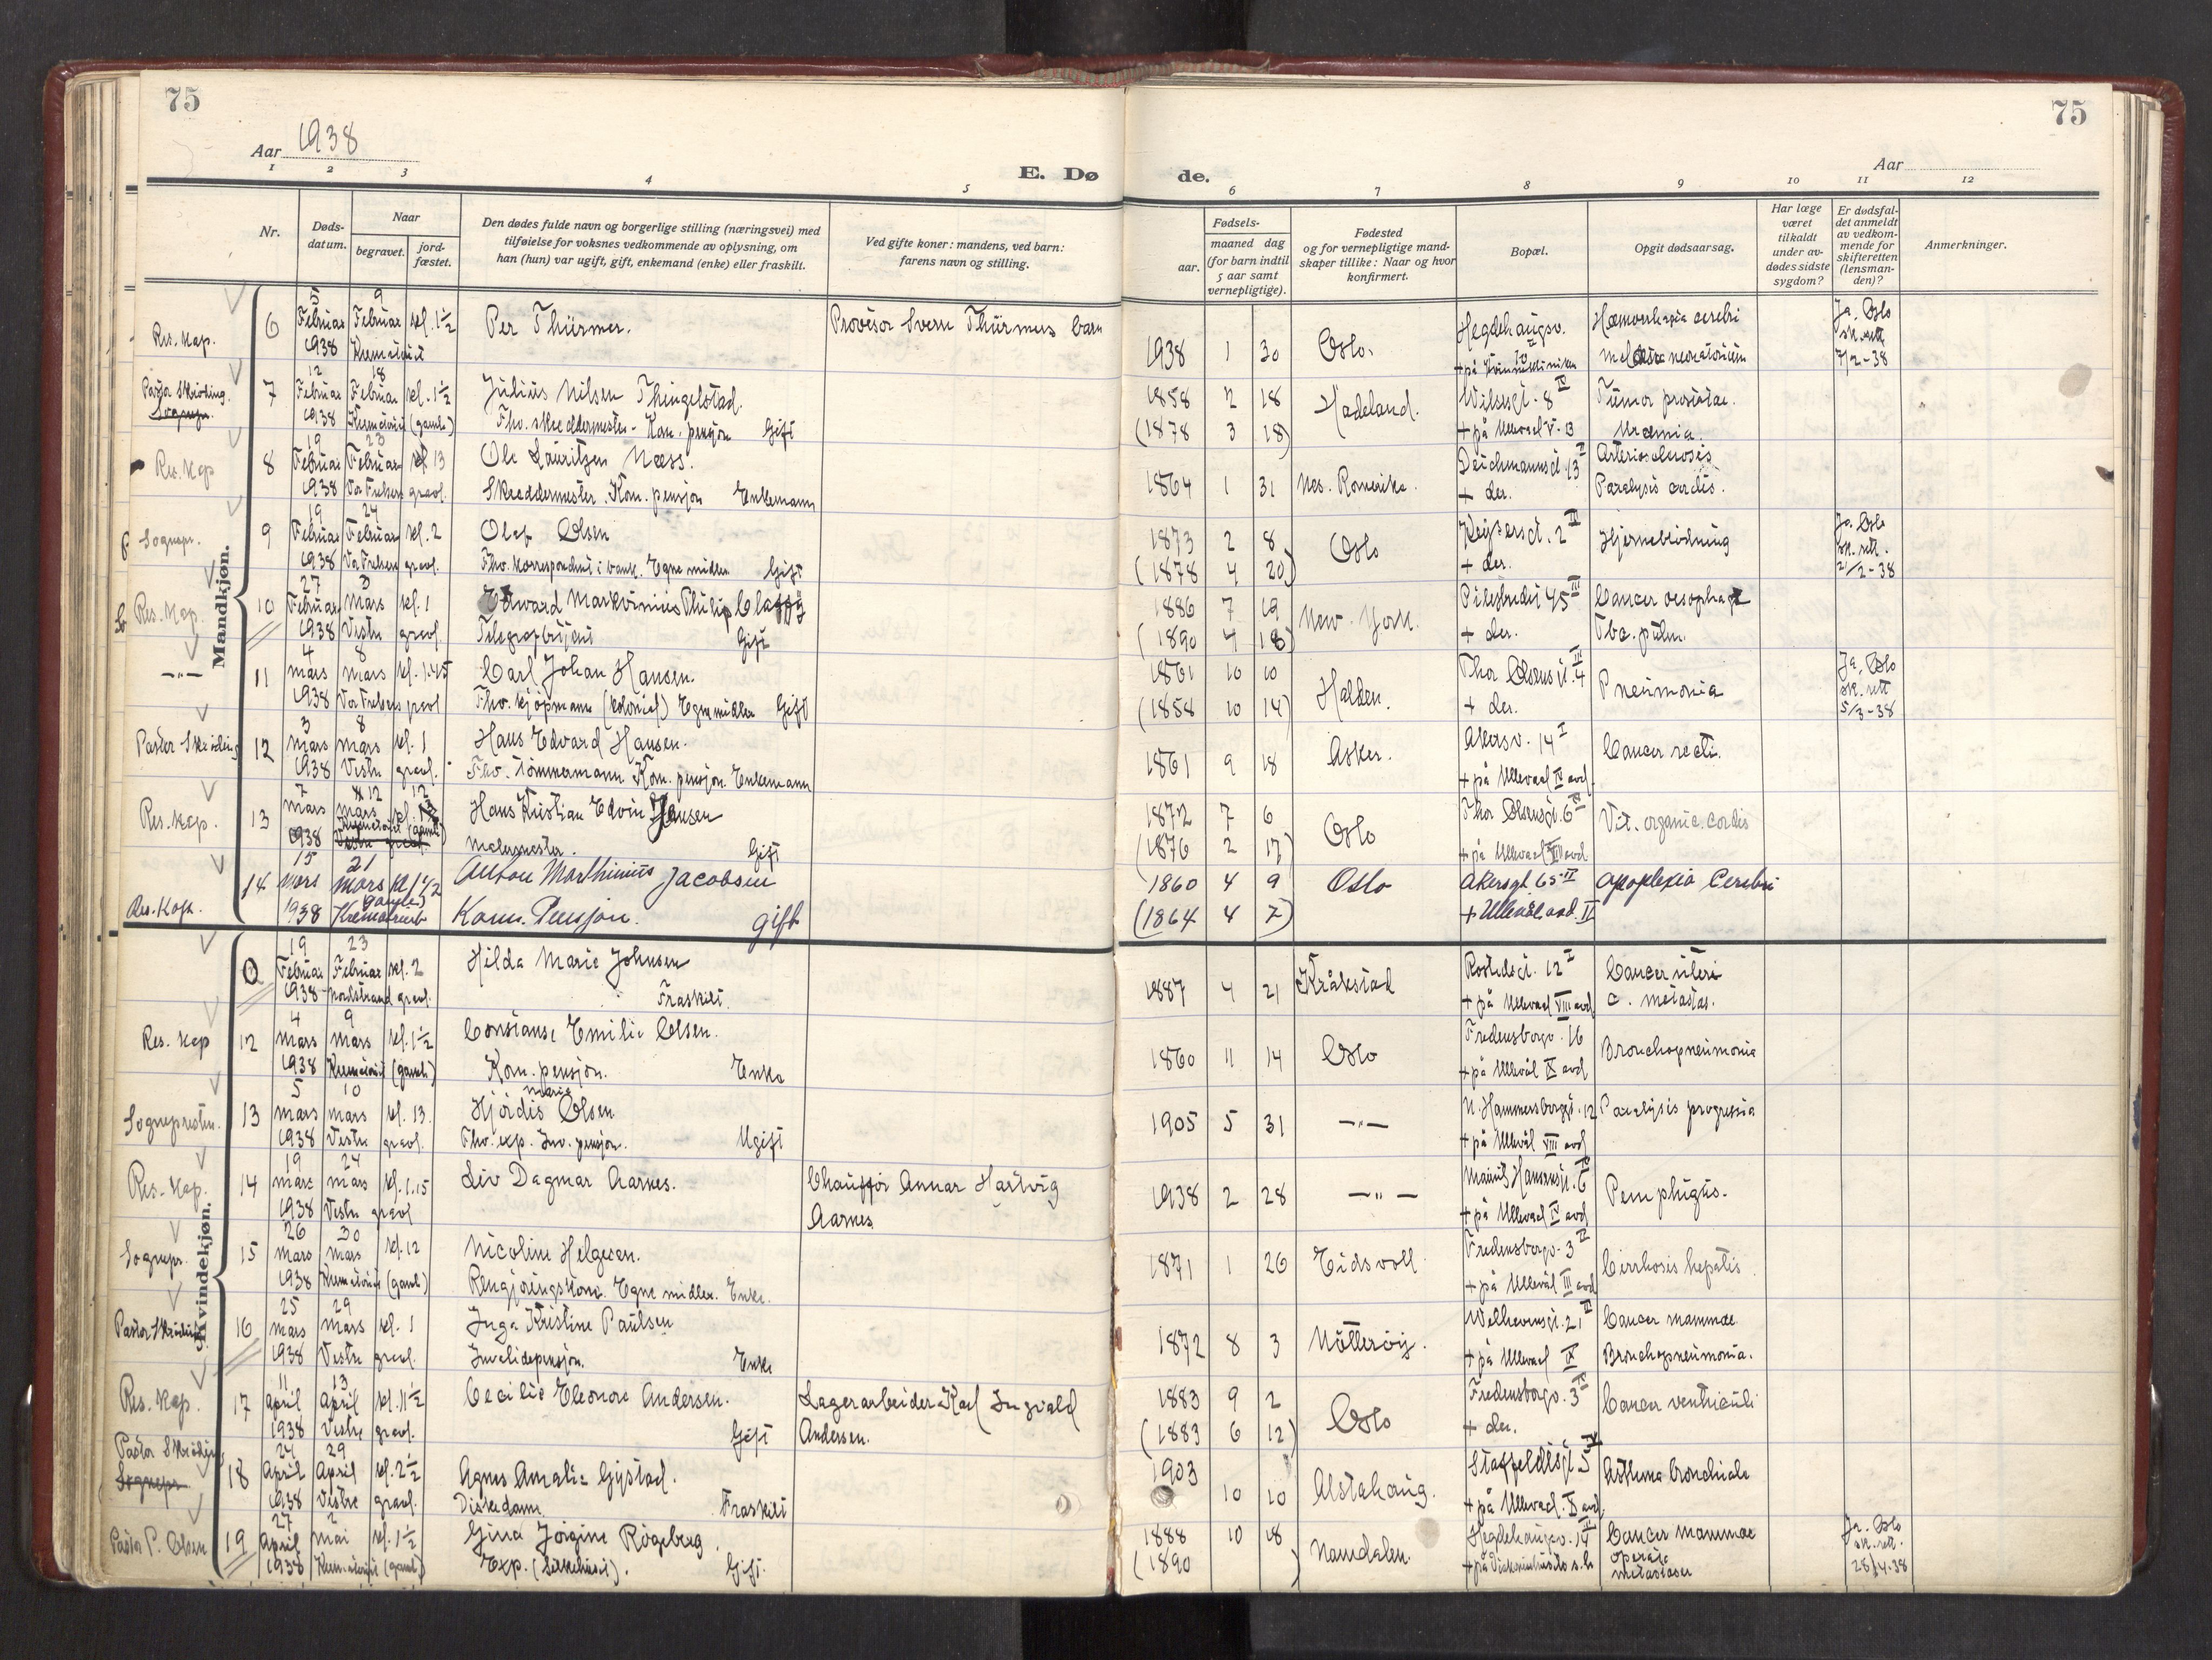 75
Aar 1938
E. Dø
1 2 3 4 5
Nr.
Døds-
datum.
Naar
begravet.
jord-
fæstet.
Den dødes fulde navn og borgerlige stilling (næringsvei) med
tilføielse for voksnes vedkommende av oplysning, om
han (hun) var ugift, gift, enkemand (enke) eller fraskilt.
Ved gifte koner: mandens, ved barn:
farens navn og stilling.
Mandkjøn.
5 9
Res. Kap. 6 Februar Februar kl. 1 1/2 Per Thürmer. Provisor Sverre Thürmers barn
1938 Krematoriet
12 18
Pastor Skröding 7 Februar Februar kl. 1 1/2 Julius Nilsen Thingelstad.
Sognepr. 1938 Krematoriet (gamle) Fhv. skreddermester - Kom. pensjon Gift
19 23
Res. Kap 8 Februar Februar kl 13 Ole Lauritzen Næss.
1938 Vor Frelsers gravl. Skreddermester. Kom. pensjon Enkemann
19 24
Sognepr. 9 Februar Februar kl. 2 Olaf Olsen
1938 Vor Frelsers gravl. Fhv. korrespondent i bank. Egne midler Gift
27 3
Res. Kap 10 Februar Mars kl. 1 Edward Markvinius Philip
1938 Vestre gravl. Telegrafbetjent Gift
4 8
—"— 11 mars mars kl. 1.45 Carl Johan Hansen.
1938 Vor Frelsers gravl Fhv. kjøpmann (kolonial) Egne midler Gift
3 8
Pastor Skröding 12 mars mars kl. 1 Hans Edvard Hansen.
1938 Vestre gravl. Fhv. Tømmermann. Kom. pensjon. Enkemann
7 12 12
Res. Kap. 13 mars mars kl. Hans Kristian Edvin Jansen
1938 Krematoriet (gamle) Malermester. Gift
Vestre gravl.
15 21
14 mars mars kl 1 1/2 Anton Marthinius Jacobsen
Res. Kap. 1938 Krematorie (gamle) Kom. Pensjon. gift
Kvindekjøn.
19 23
Februar Februar kl. 2 Hilda Marie Johnsen
1938 Nordstrand gravl. Fraskilt.
4 9
Res. Kap 12 mars mars kl. 1 1/2 Constanse Emilie Olsen.
1938 Krematoriet (gamle) Kom. pensjon. Enke
5 10 Marie
Sognepresten. 13 mars mars kl. 13 Hjördis Olsen.
1938 Vestre gravl. Fhv. exp. Inv. pensjon. Ugift
19 24
Res. Kap. 14 mars mars kl. 1.15 Liv Dagmar Aarnes. Chauffør Annar Hartvig
1938 Vestre gravl Aarnes
26 30
Sognepr. 15 mars mars kl. 12 Nicoline Helgesen.
1938 Krematoriet (gamle) Rengjøringskone. Egne midler. Enke.
25 29
Pastor Skröding 16 mars mars kl. 1 Inga Kristine Paulsen
1938 Vestre gravl. Invalidepensjon. Enke
11 13
Res. Kap. 17 April April kl. 11 1/2 Cecilie Eleonore Andersen. Lagerarbeider Karl Ingvald
1938 Vestre gravl. Gift Andersen.
24 29
Pastor Skröding 18 April April kl. 2 1/2 Agnes Amalie Gjstad.
Sognepr. 1938 Vestre gravl. Diskedame Fraskilt
27 2
Pastor P. Olsen 19 April mai kl. 1 1/2 Gina Jörgine Rögeberg.
1938 Krematoriet (gamle) Exp. Gift.
75
Aar
de.
6 7 8 9 10 11 12
Fødsels-
aar.
maaned dag
(for barn indtil
5 aar samt
vernepligtige).
Fødested
og for vernepligtige mand-
skaper tillike: Naar og hvor
konfirmert.
Bopæl.
Opgit dødsaarsag.
Har læge
været
tilkaldt
under av-
dødes sidste
sygdom?
Er dødsfal-
det anmeldt
av vedkom-
mende for
skifteretten
(lensman-
den)?
Anmerkninger.
1938 1 30 Oslo. Hegdehaugsv. Hæmorrhagia cerebri Ja. Oslo
+ på Kvinneklinikken neonatorum sk.rett
7/2-38
1858 2 18 Hadeland. Wilsesgt. 8 IV Tumor prostatae.
(1878 3 18) + på Ullevaal V. 13 Uræmia.
1864 1 31 Nes. Romerike. Deichmannsgt. 13 I Arteriosclerosis
+ der. Paralysis cordis.
1873 2 8 Oslo Keysersgt. 2 III Hjerneblødning Ja. Oslo
(1878 4 20) + der. sk. rett.
21/2-38
1886 7 19 New-York. Pilestredet 45 III Cancer oesophagi
(1890 4 18) + der. Tbc. pulm.
1861 10 10 Halden. Thor Olsens gt. 4 III Pneumonia Ja. Oslo
(1858 10 14) + der. sk. rett
5/3-38
1861 9 18 Asker. Akersv. 14 I Cancer recti.
+ på Ullevaal IV avd.
1872 7 6 Oslo Thor Olsensgt. 6 Vit. organic. cordis
(1876 2 17) + på Ullevaal avd
1860 4 9 Oslo Akersgt. 65 II Apoplexia Cerebri
(1864 4 7) + Ullevål avd. II
1887 4 21 Kråkstad Rostedsgt. 12 I Cancer uteri
+ på Ullevaal VIII avd c. metastas.
1860 11 14 Oslo Fredensborgv. 16 Bronchopneumonia
+ på Ullevål IX avd
1905 5 31 —"— N. Hammersborggt. 12 Paralysis progressia
+ på Ullevål VIII avd
1938 2 28 —"— Maurits Hansensgt. 6 Pemphigus.
+ på Ullevaal IV avd
1871 1 26 Eidsvoll Fredensborgv. 3 II Cirrhosis hepatis
+ på Ullevål III avd
1872 8 3 Nøtterøy. Welhavensgt. 21 II Cancer mammae
+ på Ullevaal IX Bronchopneumonia.
1883 9 2 Oslo Fredensborgv. 3 Cancer ventriculi
(1883 6 12) + der.
1903 10 10 Alstahaug. Staffeldtsgt 5 IV Asthma bronchiale
+ på Ullevaal. X avd
1888 10 18 Namdalen. Hegdehaugsv. 14 Cancer mammae Ja. Oslo
(1890 ) + på Diakonissehusets s.h. operata sk. rett.
metastaser 28/4-38